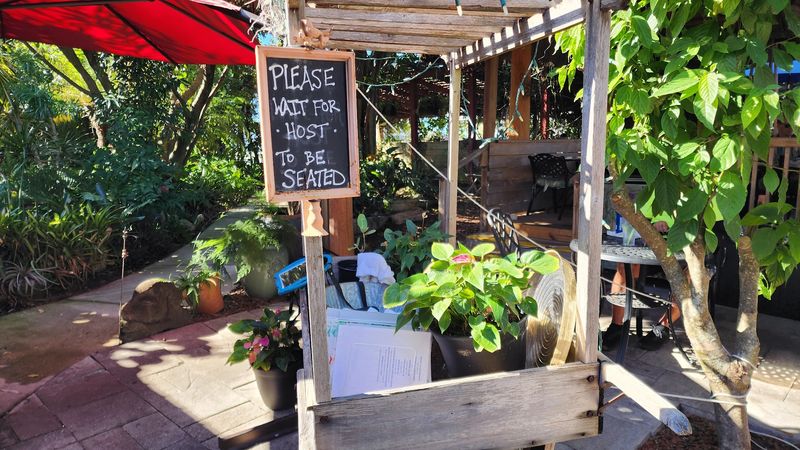 PLEASE
WAIT FOR
· HOST ·
TO BE
SEATED